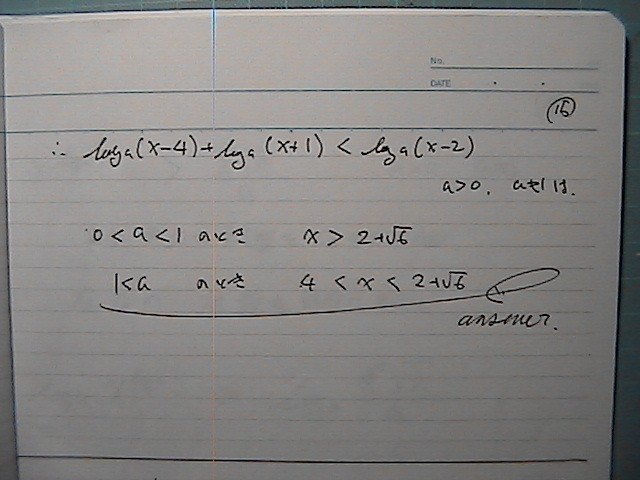 No.
DATE
⑯
∴ log a (x-4) + log a (x+1) < log a (x-2)
a>0, a≠1 は、
0<a<1 のとき x > 2+√6
1<a のとき 4 < x < 2+√6
answer.